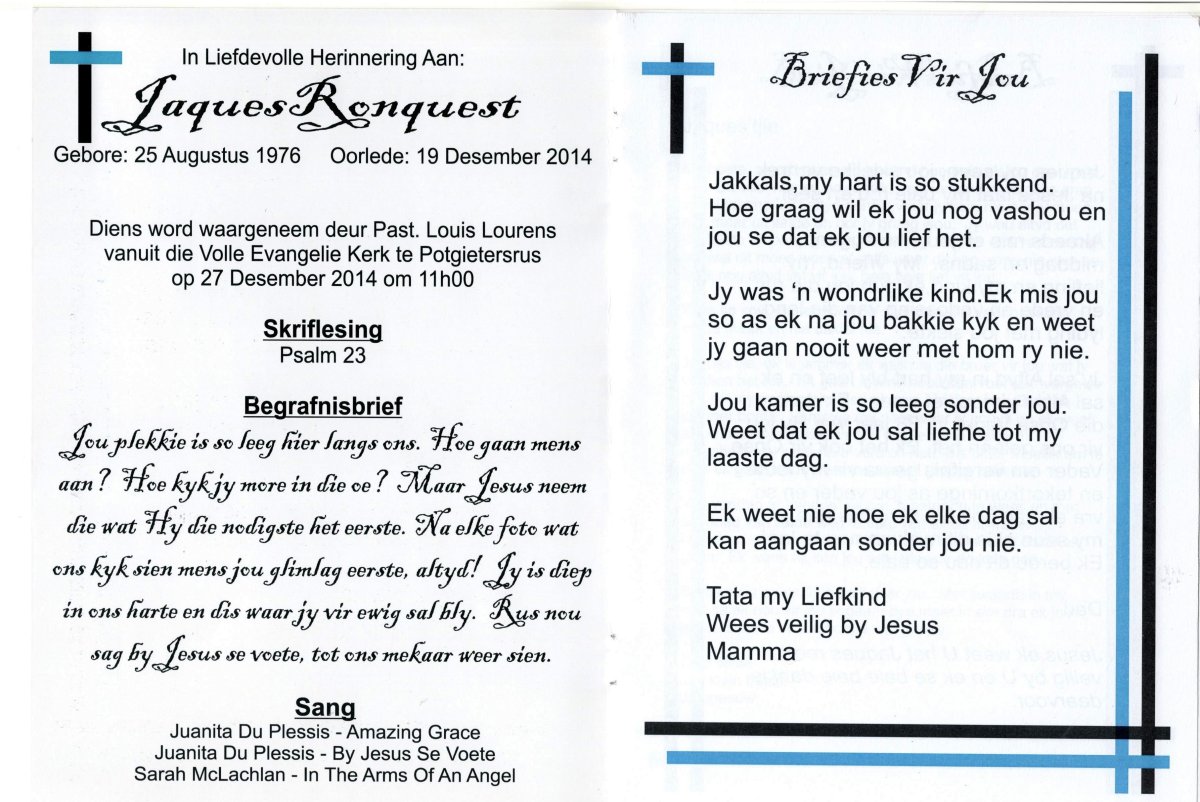 In Liefdevolle Herinnering Aan:
Jaques Ronquest
Gebore: 25 Augustus 1976 Oorlede: 19 Desember 2014
Diens word waargeneem deur Past. Louis Lourens
vanuit die Volle Evangelie Kerk te Potgietersrus
op 27 Desember 2014 om 11h00
Skriflesing
Psalm 23
Begrafnisbrief
Jou plekkie is so leeg hier langs ons. Hoe gaan mens
aan? Hoe kyk jy more in die oe? Maar Jesus neem
die wat Hy die nodigste het eerste. Na elke foto wat
ons kyk sien mens jou glimlag eerste, altyd! Jy is diep
in ons harte en dis waar jy vir ewig sal bly. Rus nou
sag by Jesus se voete, tot ons mekaar weer sien.
Sang
Juanita Du Plessis - Amazing Grace
Juanita Du Plessis - By Jesus Se Voete
Sarah McLachlan - In The Arms Of An Angel
Briefies Vir Jou
Jakkals,my hart is so stukkend.
Hoe graag wil ek jou nog vashou en
jou se dat ek jou lief het.
Jy was ‘n wondrlike kind.Ek mis jou
so as ek na jou bakkie kyk en weet
jy gaan nooit weer met hom ry nie.
Jou kamer is so leeg sonder jou.
Weet dat ek jou sal liefhe tot my
laaste dag.
Ek weet nie hoe ek elke dag sal
kan aangaan sonder jou nie.
Tata my Liefkind
Wees veilig by Jesus
Mamma